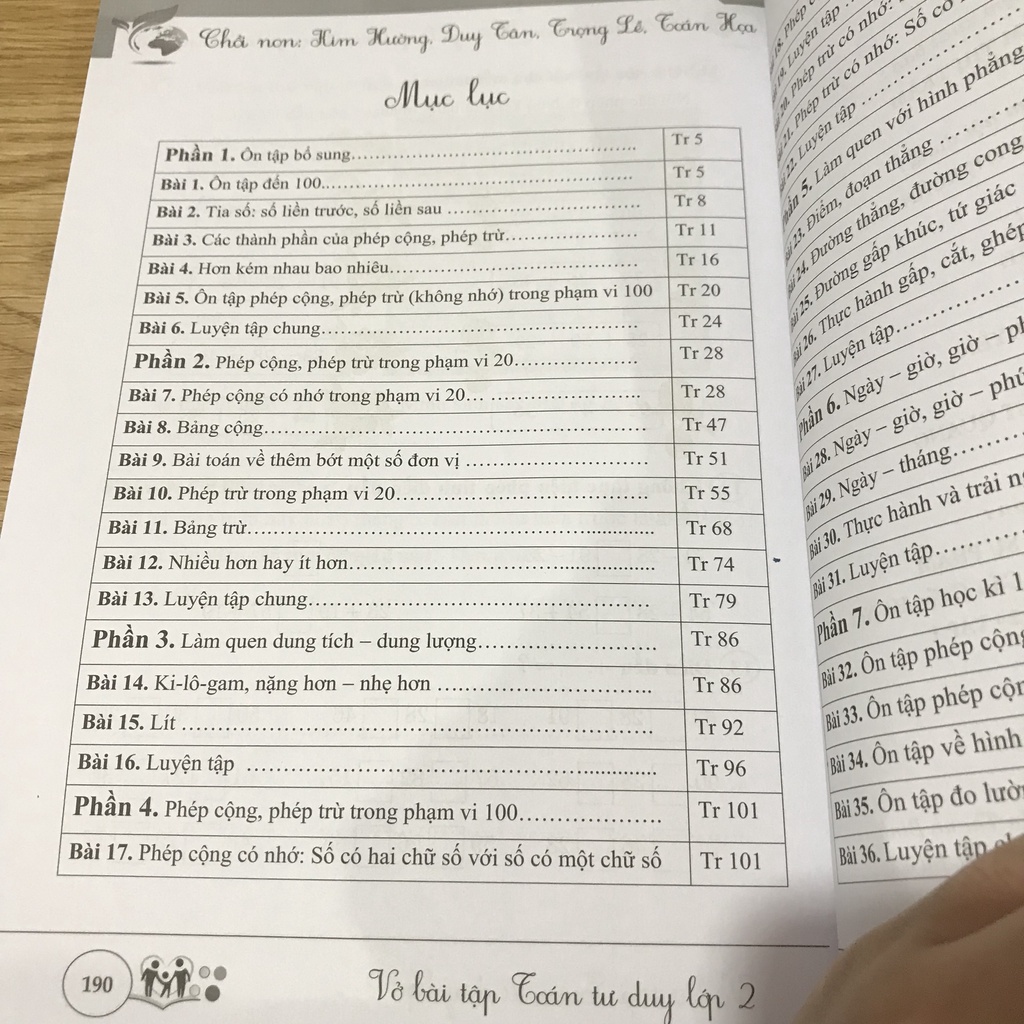 Chồi non: Kim Hường, Duy Tân, Trọng Lê, Toán Họa
Mục lục
Phần 1. Ôn tập bổ sung.......... Tr 5
Bài 1. Ôn tập đến 100.......... Tr 5
Bài 2. Tia số: số liền trước, số liền sau .......... Tr 8
Bài 3. Các thành phần của phép cộng, phép trừ.......... Tr 11
Bài 4. Hơn kém nhau bao nhiêu.......... Tr 16
Bài 5. Ôn tập phép cộng, phép trừ (không nhớ) trong phạm vi 100 Tr 20
Bài 6. Luyện tập chung.......... Tr 24
Phần 2. Phép cộng, phép trừ trong phạm vi 20.......... Tr 28
Bài 7. Phép cộng có nhớ trong phạm vi 20... .......... Tr 28
Bài 8. Bảng cộng.......... Tr 47
Bài 9. Bài toán về thêm bớt một số đơn vị .......... Tr 51
Bài 10. Phép trừ trong phạm vi 20.......... Tr 55
Bài 11. Bảng trừ.......... Tr 68
Bài 12. Nhiều hơn hay ít hơn.......... Tr 74
Bài 13. Luyện tập chung.......... Tr 79
Phần 3. Làm quen dung tích – dung lượng.......... Tr 86
Bài 14. Ki-lô-gam, nặng hơn – nhẹ hơn .......... Tr 86
Bài 15. Lít .......... Tr 92
Bài 16. Luyện tập .......... Tr 96
Phần 4. Phép cộng, phép trừ trong phạm vi 100.......... Tr 101
Bài 17. Phép cộng có nhớ: Số có hai chữ số với số có một chữ số Tr 101
190
Vở bài tập Toán tư duy lớp 2
18. Phép
19. Luyện tập
20. Phép trừ có nhớ:
21. Phép trừ có nhớ: Số có
22. Luyện tập ..........
Phần 5. Làm quen với hình phẳng
Bài 23. Điểm, đoạn thẳng ..........
Bài 24. Đường thẳng, đường cong
Bài 25. Đường gấp khúc, tứ giác
Bài 26. Thực hành gấp, cắt, ghép
Bài 27. Luyện tập..........
Phần 6. Ngày – giờ, giờ –
Bài 28. Ngày – giờ, giờ – phú
Bài 29. Ngày – tháng..........
Bài 30. Thực hành và trải
Bài 31. Luyện tập..........
Phần 7. Ôn tập học kì 1
Bài 32. Ôn tập phép cộng
Bài 33. Ôn tập phép cộ
Bài 34. Ôn tập về hình
Bài 35. Ôn tập đo lườ
Bài 36. Luyện tập